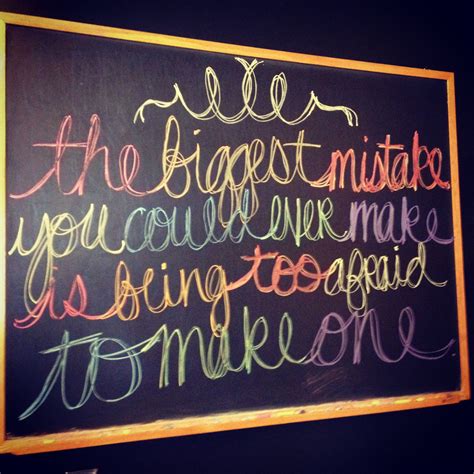 the biggest mistake
you could ever make
is being too afraid
to make one